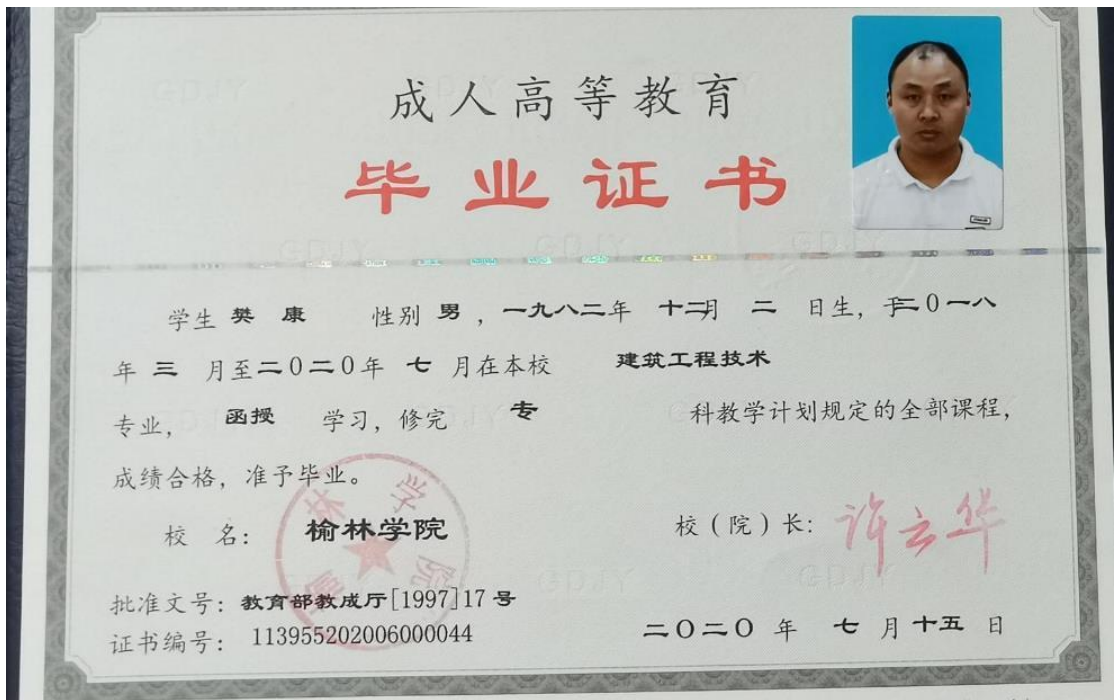 成人高等教育
毕业证书
学生 樊康 性别 男 ，一九八二年 十二月 二 日生，于二0一八
年 三 月至二0二0年 七 月在本校 建筑工程技术
专业， 函授 学习，修完 专 科教学计划规定的全部课程，
成绩合格，准予毕业。
校 名： 榆林学院
校（院）长： 许云华
批准文号：教育部教成厅[1997]17号
证书编号： 113955202006000044
二〇二〇 年 七 月 十五 日
榆林学院
GDJY